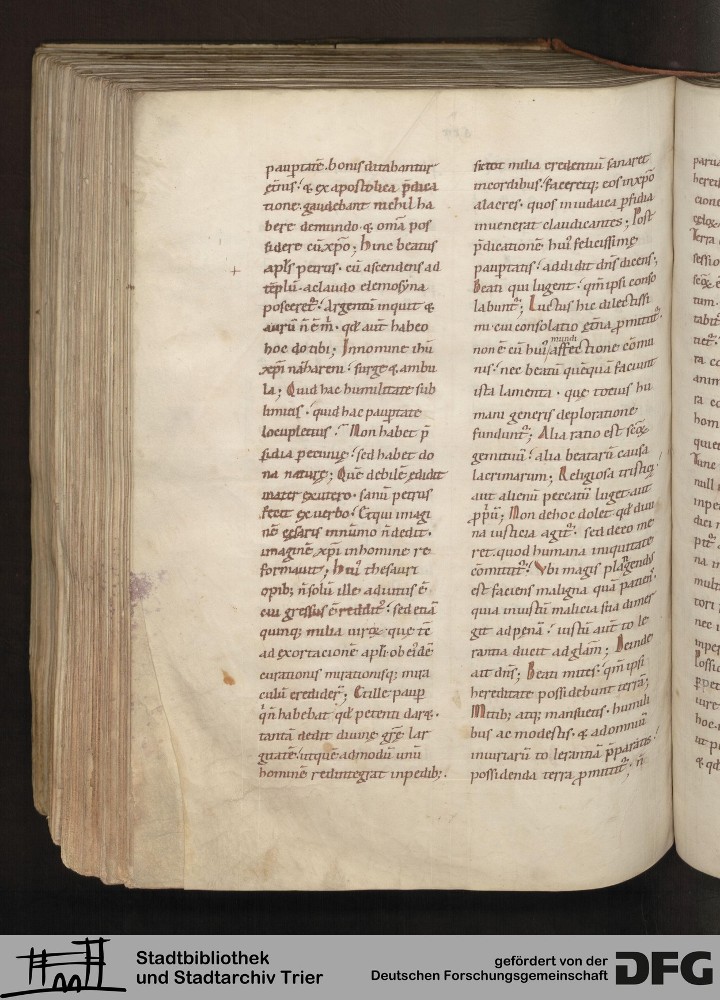 paup̄tatē. bonis ditabantur
et̄nis. & ex apostolica p̄dica
tione. gaudebant nichil ha
bere demundo. & om̄a pos
sidere cū xp̄o; Hinc beatus
apl̄s petrus. cū ascendens ad
tēplū. aclaudo elemosẏna
posceret᷑. Argentū inquit &
aurū n̄ ē m̄. qd̄ aut̄ habeo
hoc do tibi; Innomine ih̄u
xp̄i nazareni surge & ambu
la; Quid hac humilitate sub
limius. quid hac paup̄tate
locupletius? Non habet p̄
sidia pecunię. sed habet do
na naturę; Quē debilē edidit
mater exutero. sanū petrus
fecit exverbo. Et qui imagi
nē cęsaris innūmo n̄ dedit.
imaginē xp̄i inhomine re
formavit; Hui᷒ thesauri
opib; n̄ solū ille adiutus ē
cui gressus ē reddit᷑. sed etiā
quinq; milia
ad exortacionē apl̄i. ob eidē
curationis
culū crediderꝫ; Et ille paup̄
q̄ n̄ habebat qd̄ petenti darꝫ.
tantā dedit divinę grę̄ lar
gitatē. ut quēadmodū unū
hominē redintegrat inpedib;.
sic tot milia credentiū sanaret
incordibus. faceretq; eos inxp̄o
alacres. quos iniudaica p̄fidia
invenerat claudicantes; Post
p̄dicationē hui᷒ felicissimę
paup̄tatis. addidit dn̄s dicens;
Beati qui lugent. qm̄ ipsi conso
labunt᷑; Luctus hic dilectissi
mi cui consolatio et̄na p̄mittit᷑.
non ē cū hui᷒ mundi affectione cōmu
nis. nec beatū quēquā faciunt
ista lamenta. quę totius hu
mani generis deploratione
fundunt᷑; Alia ratio est scōꝝ
gemituū. alia beatarū causa
lacrimarum; Religiosa tristici
aut alienū peccatū luget. aut
p̄p̄iū; Non dehoc dolet qd̄ divi
na iusticia agit᷑. sed deeo me
ret. quod humana iniquitate
cōmittit᷑. Ubi magis plangendus
est faciens maligna quā patiens.
quia iniustū malicia sua dimer
git ad penā. iustū aut̄ to le
rantia ducit ad gl̄am; Deinde
ait dn̄s; Beati mites. qm̄ ipsi
hereditate possidebunt terrā;
Mitib; atq; mansuetis. humili
bus ac modestis. & adomniū
iniuriarū to lerantiā p̄paratis.
possidenda terra p̄mittit᷑; n̄
Stadtbibliothek
und Stadtarchiv Trier
gefördert von der
Deutschen Forschungsgemeinschaft
DFG